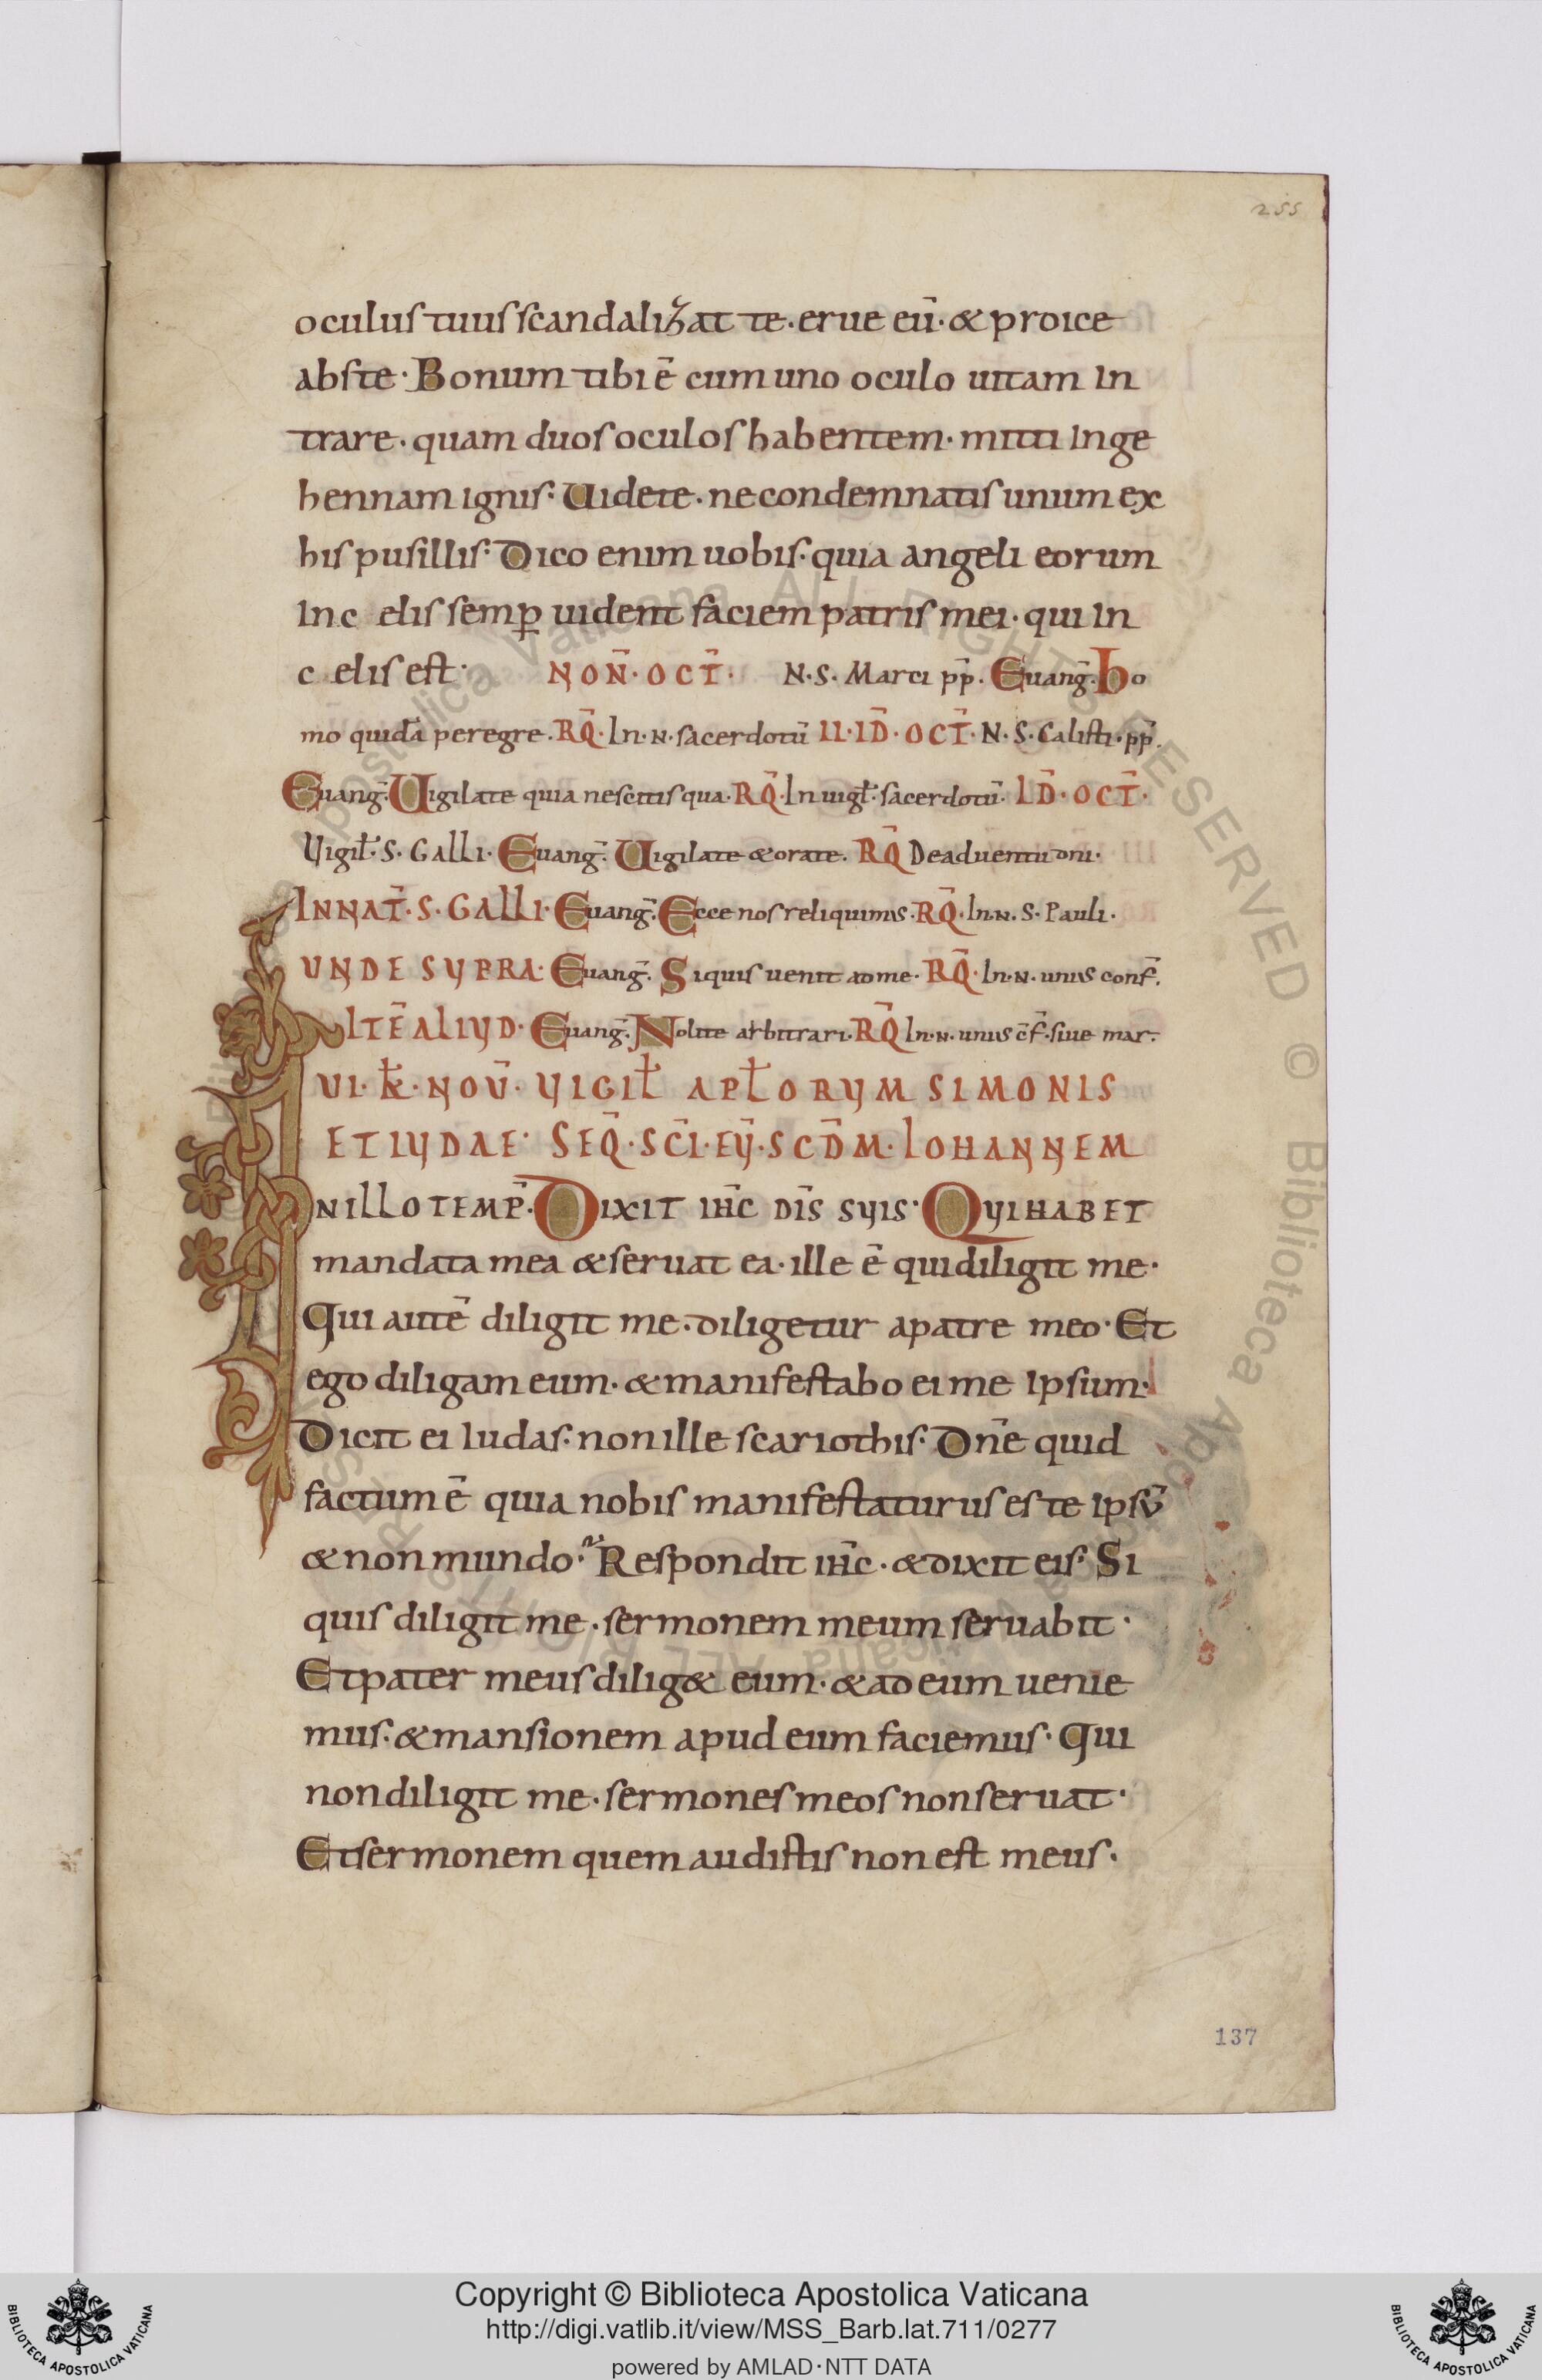 255
oculus tuus scandalizat te. erue eū. & proice
abs te. Bonum tibi ē cum uno oculo uitam in
trare. quam duos oculos habentem. mitti in ge
hennam ignis. Uidete. ne condemnatis unum ex
his pusillis. Dico enim uobis. quia angeli eorum
in c elis semp̄ uident faciem patris mei. qui in
c elis est. NON̄. OCT̄. N. S. Marci pp̄. Euang̃. ho
mo quidā peregre. RQ̄. In. N. sacerdotū II. ID̄. OCT̄. N. S. Calisti. pp̄.
Euang̃. Uigilate quia nescitis qua. RQ̄. In uigł. sacerdotū. ID̄. OCT̄.
Uigił. S. Galli. Euang̃. Uigilate & orate. RQ̄ De aduentu dn̄i.
IN NAT̄. S. GALLI. Euang̃. Ecce nos reliquimus. RQ̄. In. N. S. Pauli.
UNDE SUPRA. Euang̃. Si quis uenit ad me. RQ̄. In. N. unius conf̄.
ITĒ ALIUD. Euang̃. Nolite arbitrari. RQ̄ In. N. unius c̄f. siue mar.
VI. K̄. NOV̄. VIGIŁ APŁORUM SIMONIS
ET IUDAE. SEQ̄. SC̄I. EU̅. SCD̄M. IOHANNEM
IN ILLO TEMP̄. DIXIT IH̄C DIS̄ SUIS. QUI HABET
mandata mea & seruat ea. ille ē qui diligit me.
Qui autē diligit me. diligetur a patre meo. Et
ego diligam eum. & manifestabo ei me ipsum.
Dicit ei Iudas. non ille scariothis. Dn̄e quid
factum ē quia nobis manifestaturus es te ipsū
& non mundo. Respondit ih̄c. & dixit eis. Si
quis diligit me. sermonem meum seruabit.
Et pater meus dilig& eum. & ad eum uenie
mus. & mansionem apud eum faciemus. Qui
non diligit me. sermones meos non seruat.
Et sermonem quem audistis non est meus.
137
Copyright © Biblioteca Apostolica Vaticana
http://digi.vatlib.it/view/MSS_Barb.lat.711/0277
powered by AMLAD·NTT DATA
BIBLIOTECA APOSTOLICA VATICANA
BIBLIOTECA APOSTOLICA VATICANA